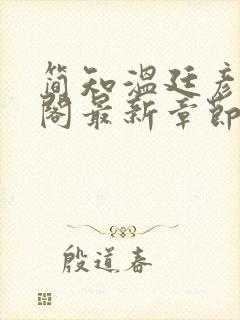 简知温廷彦
阁最新章节
殷道春